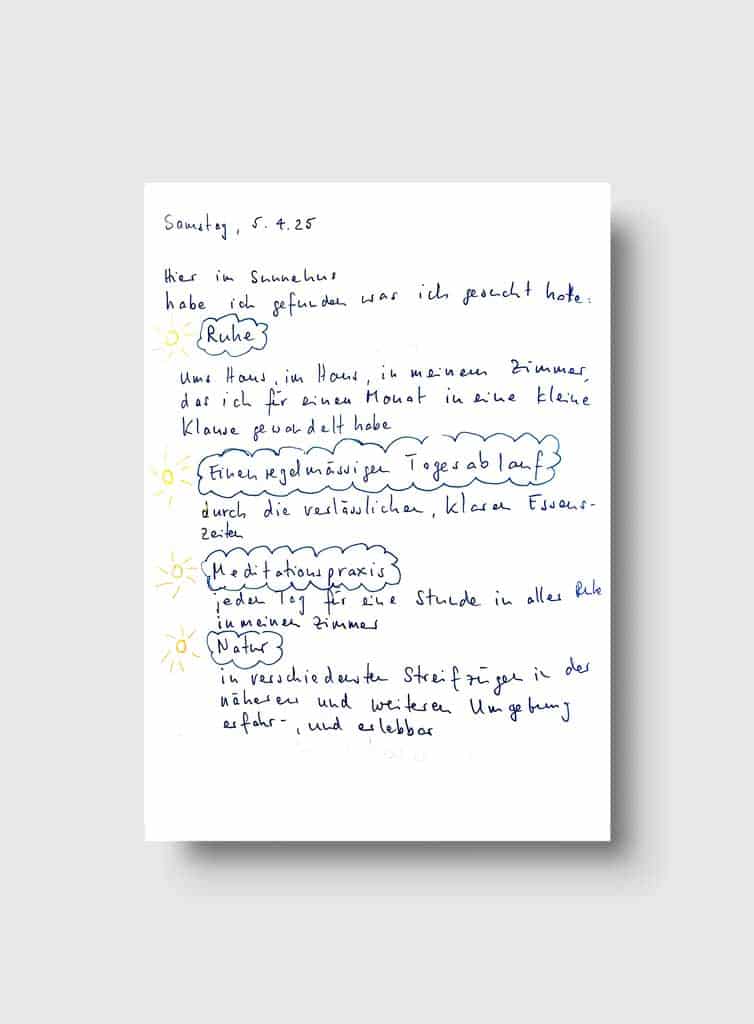 Samstag, 5.4.25
Hier im Sunnehus
habe ich gefunden was ich gesucht hatte:
Ruhe
Ums Haus, im Haus, in meinem Zimmer,
das ich für einen Monat in eine kleine
Klause gewandelt habe
Einen regelmässigen Tagesablauf
durch die verlässlichen, klaren Essens-
zeiten
Meditationspraxis
jeden Tag für eine Stunde in aller Ruhe
in meinem Zimmer
Natur
in verschiedensten Streifzügen in der
näheren und weiteren Umgebung
erfahr-, und erlebbar